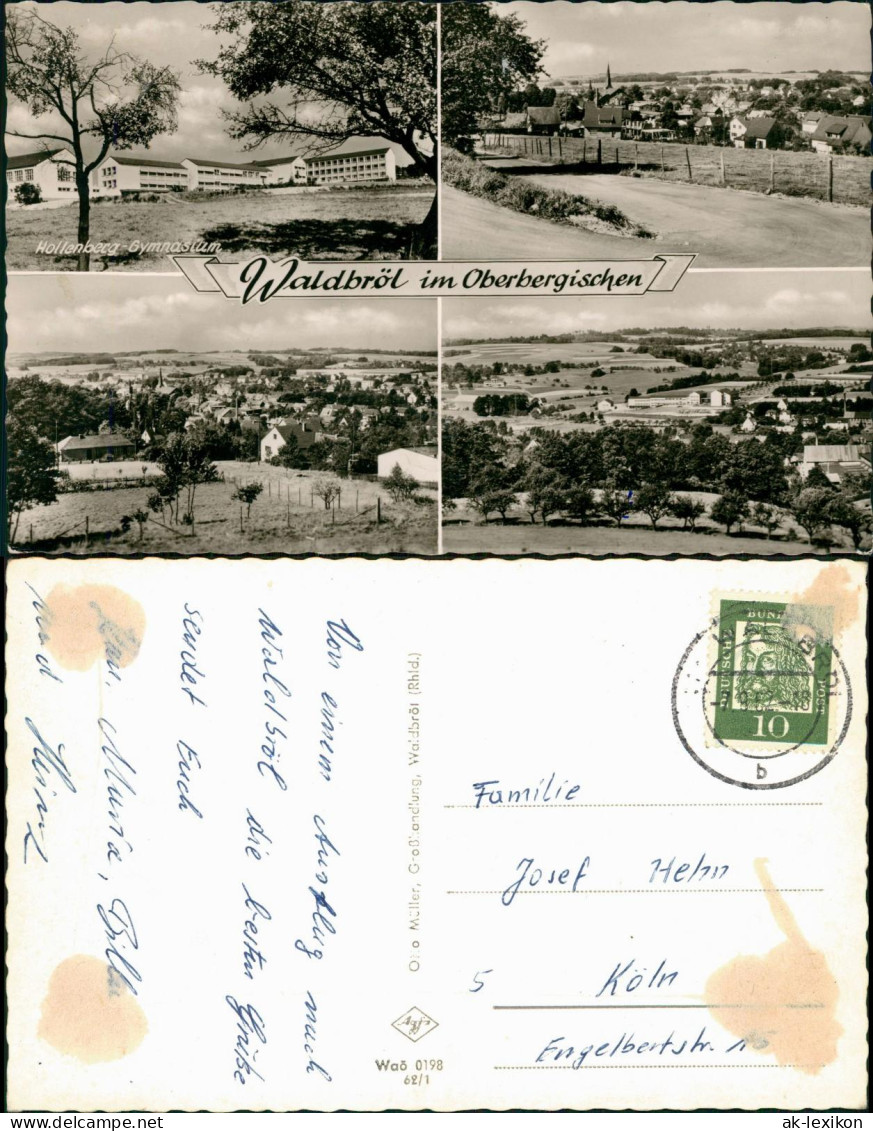 Hollenberg-Gymnasium
Waldbröl im Oberbergischen
Von einem Ausflug nach
Waldbröl die besten Grüße
sendet Euch
Maria,
und Heinz
Otto Müller, Großhandlung, Waldbröl (Rhld.)
Agfa
Waö 0198
62/1
DEUTSCHE
BUND
POST
10
b
Familie
Josef Hehn
5 Köln
Engelbertstr.
ak-lexikon
ak-lexikon.com